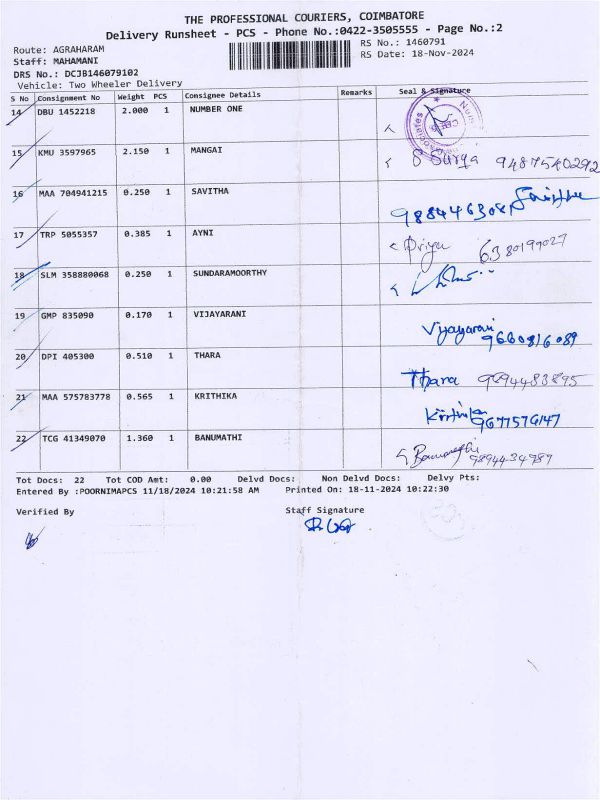 THE PROFESSIONAL COURIERS, COIMBATORE
Delivery Runsheet - PCS - Phone No.:0422-3505555 - Page No.:2
Route: AGRAHARAM
RS No.: 1460791
Staff: MAHAMANI
RS Date: 18-Nov-2024
DRS No.: DCJB146079102
Vehicle: Two Wheeler Delivery
S No Consignment No Weight PCS Consignee Details Remarks Seal & Signature
14 DBU 1452218 2.000 1 NUMBER ONE
15 KMU 3597965 2.150 1 MANGAI S Surya 9487540292
16 MAA 704941215 0.250 1 SAVITHA
17 TRP 5055357 0.385 1 AYNI Priya 6380199027
18 SLM 358880068 0.250 1 SUNDARAMOORTHY
19 GMP 835090 0.170 1 VIJAYARANI Vijayarani
20 DPI 405300 0.510 1 THARA Thara 9894483895
21 MAA 575783778 0.565 1 KRITHIKA
22 TCG 41349070 1.360 1 BANUMATHI Banumathi
Tot Docs: 22 Tot COD Amt: 0.00 Delvd Docs: Non Delvd Docs: Delvy Pts:
Entered By :POORNIMAPCS 11/18/2024 10:21:58 AM Printed On: 18-11-2024 10:22:30
Verified By Staff Signature